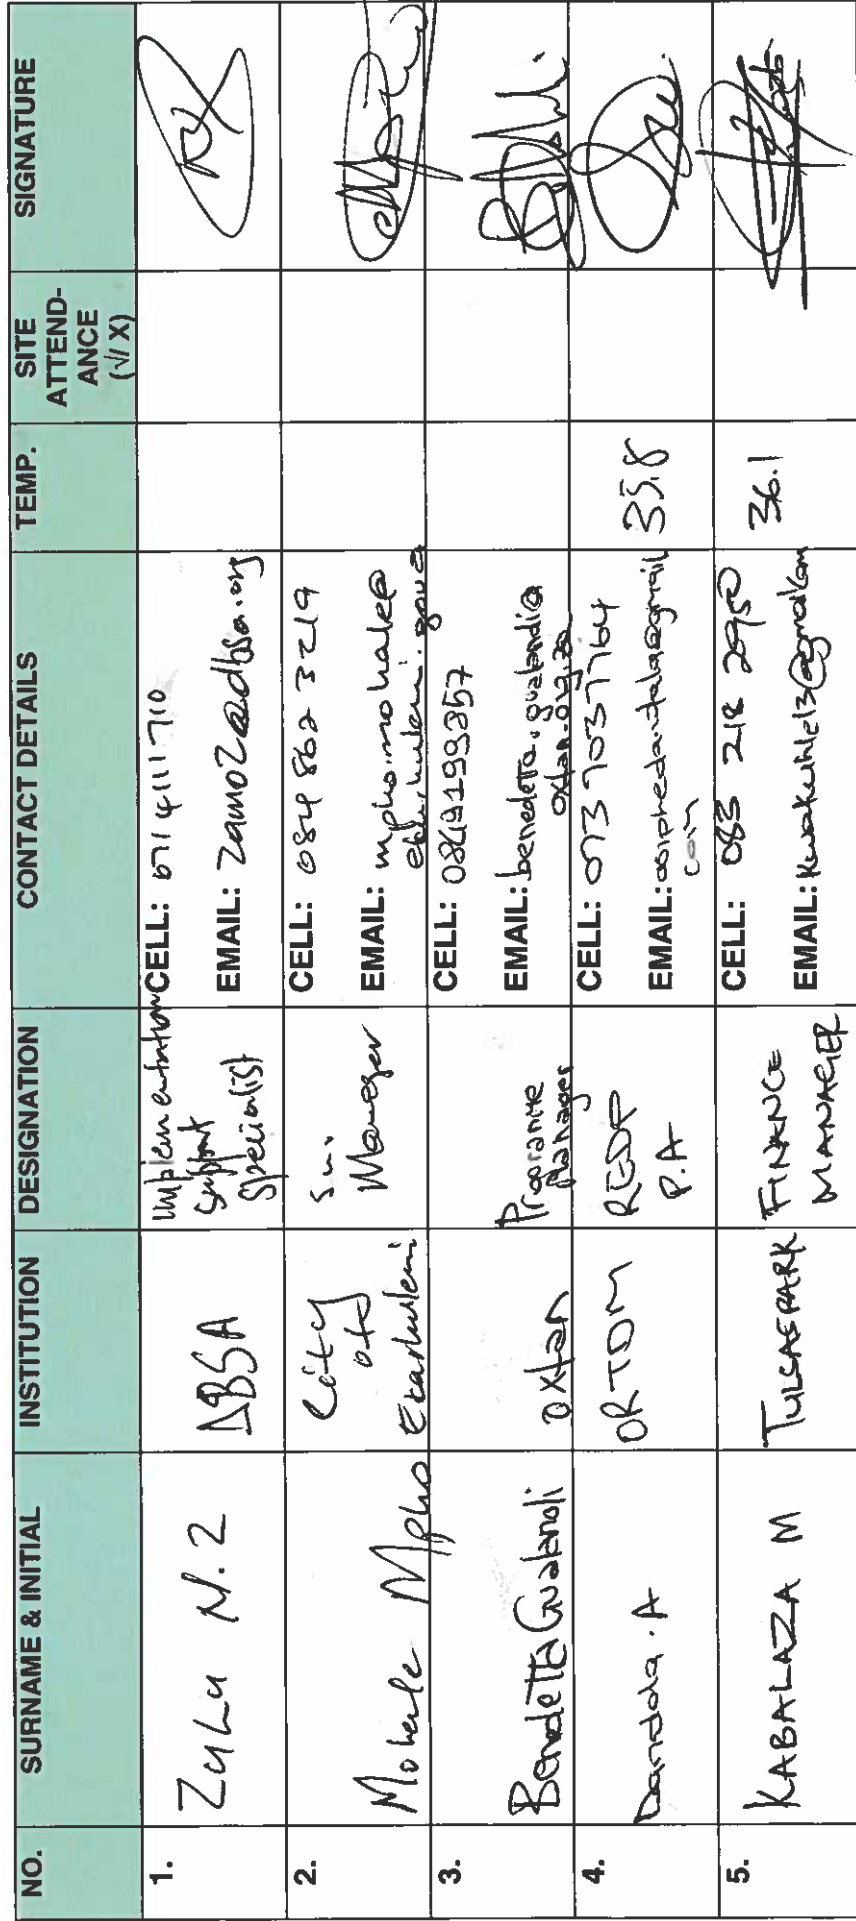 NO. SURNAME & INITIAL INSTITUTION DESIGNATION CONTACT DETAILS TEMP. SITE ATTEND-ANCE (√/ X) SIGNATURE
1. Zulu N.Z DBSA Implementation Support Specialist
CELL: 0714111710
EMAIL: zamoZ@dbsa.org
2. Mohale Mpho City of Ekurhuleni Snr Manager
CELL: 084 862 3219
EMAIL: mpho.mohale@
3. Benedetta Gualandi oxfam Programme Manager
CELL:
EMAIL: benedetta.gualandi@
oxfam.org.za
4. Dandala.A ORTDM REDP P.A 35.8
CELL: 073 7037764
EMAIL:
com
5. KABALAZA M FINANCE MANAGER 36.1
CELL: 083 218
EMAIL: